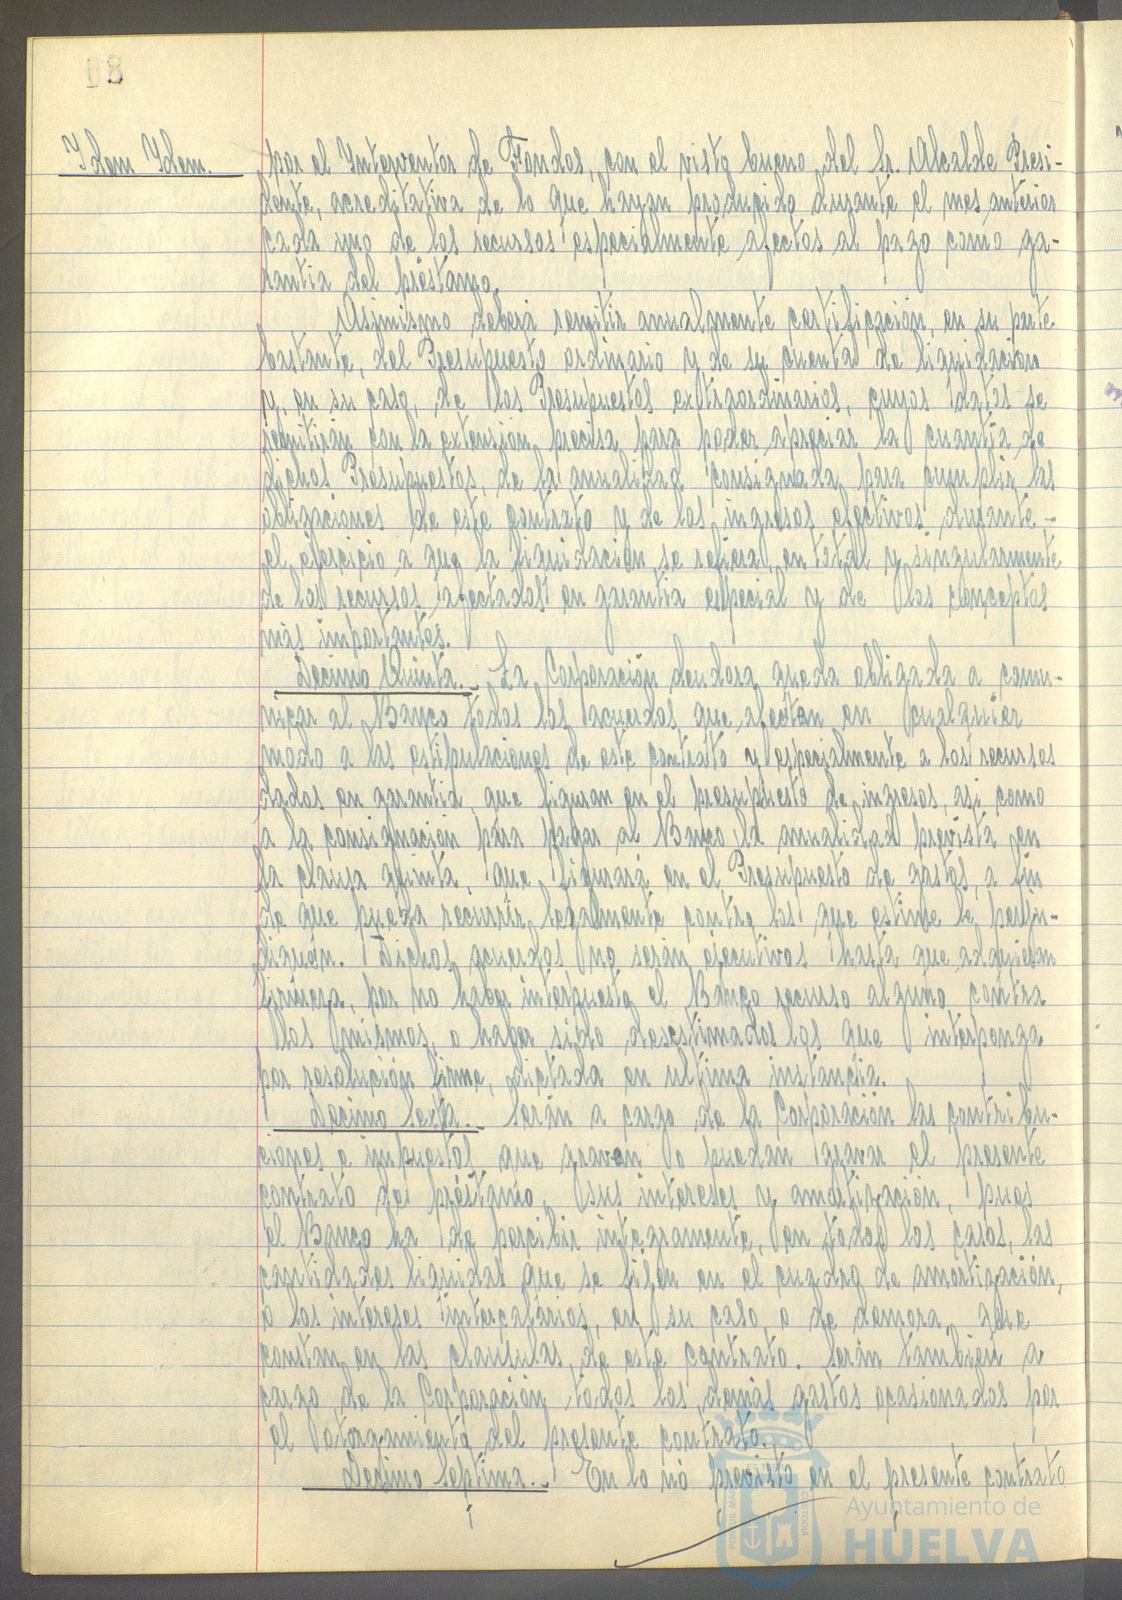 Idem Idem.
por el Interventor de Fondos, con el visto bueno del Sr. Alcalde Presi-
dente, acreditativa de lo que hayan producido durante el mes anterior
cada uno de los recursos especialmente afectos al pago como ga-
rantia del préstamo.
Asimismo deberá remitir anualmente certificación, en su parte
bastante, del Presupuesto ordinario y de su cuenta de liquidación
y, en su caso, de los Presupuestos extraordinarios, cuyos datos se
remitirán con la extensión precisa para poder apreciar la cuantía de
dichos Presupuestos, de la anualidad consignada para cumplir las
obligaciones de este contrato y de los ingresos efectivos durante
el ejercicio a que la liquidación se refiera, en total y singularmente
de los recursos afectados en garantía especial y de los conceptos
más importantes.
Decimo Quinta.- La Corporación deudora queda obligada a comu-
nicar al Banco todos los acuerdos que afecten en cualquier
modo a las estipulaciones de este contrato y especialmente a los recursos
dados en garantía, que figuran en el presupuesto de ingresos, asi como
a la consignación para pagar al Banco la anualidad prevista en
la clausa quinta, que figurará en el Presupuesto de gastos, a fin
de que pueda recurrir legalmente contra los que estime le perju-
diquen. Dichos acuerdos no serán ejecutivos hasta que adquieran
firmeza, por no haber interpuesto el Banco recurso alguno contra
los mismos, o haber sido desestimados los que interponga
por resolución firme, dictada en ultima instancia.
Decimo Sexta.- Serán a cargo de la Corporación las contribu-
ciones e impuestos que graven o puedan gravar el presente
contrato de préstamo, sus intereses y amortización, pues
el Banco ha de percibir integramente, en todos los casos, las
cantidades liquidas que se fijen en el cuadro de amortización,
o los intereses intercalarios, en su caso, o de demora, que
constan en las clausulas de este contrato. Serán también a
cargo de la Corporación todos los demás gastos ocasionados por
el otorgamiento del presente contrato.
Decimo Septima.- En lo no previsto en el presente contrato
Ayuntamiento de
HUELVA